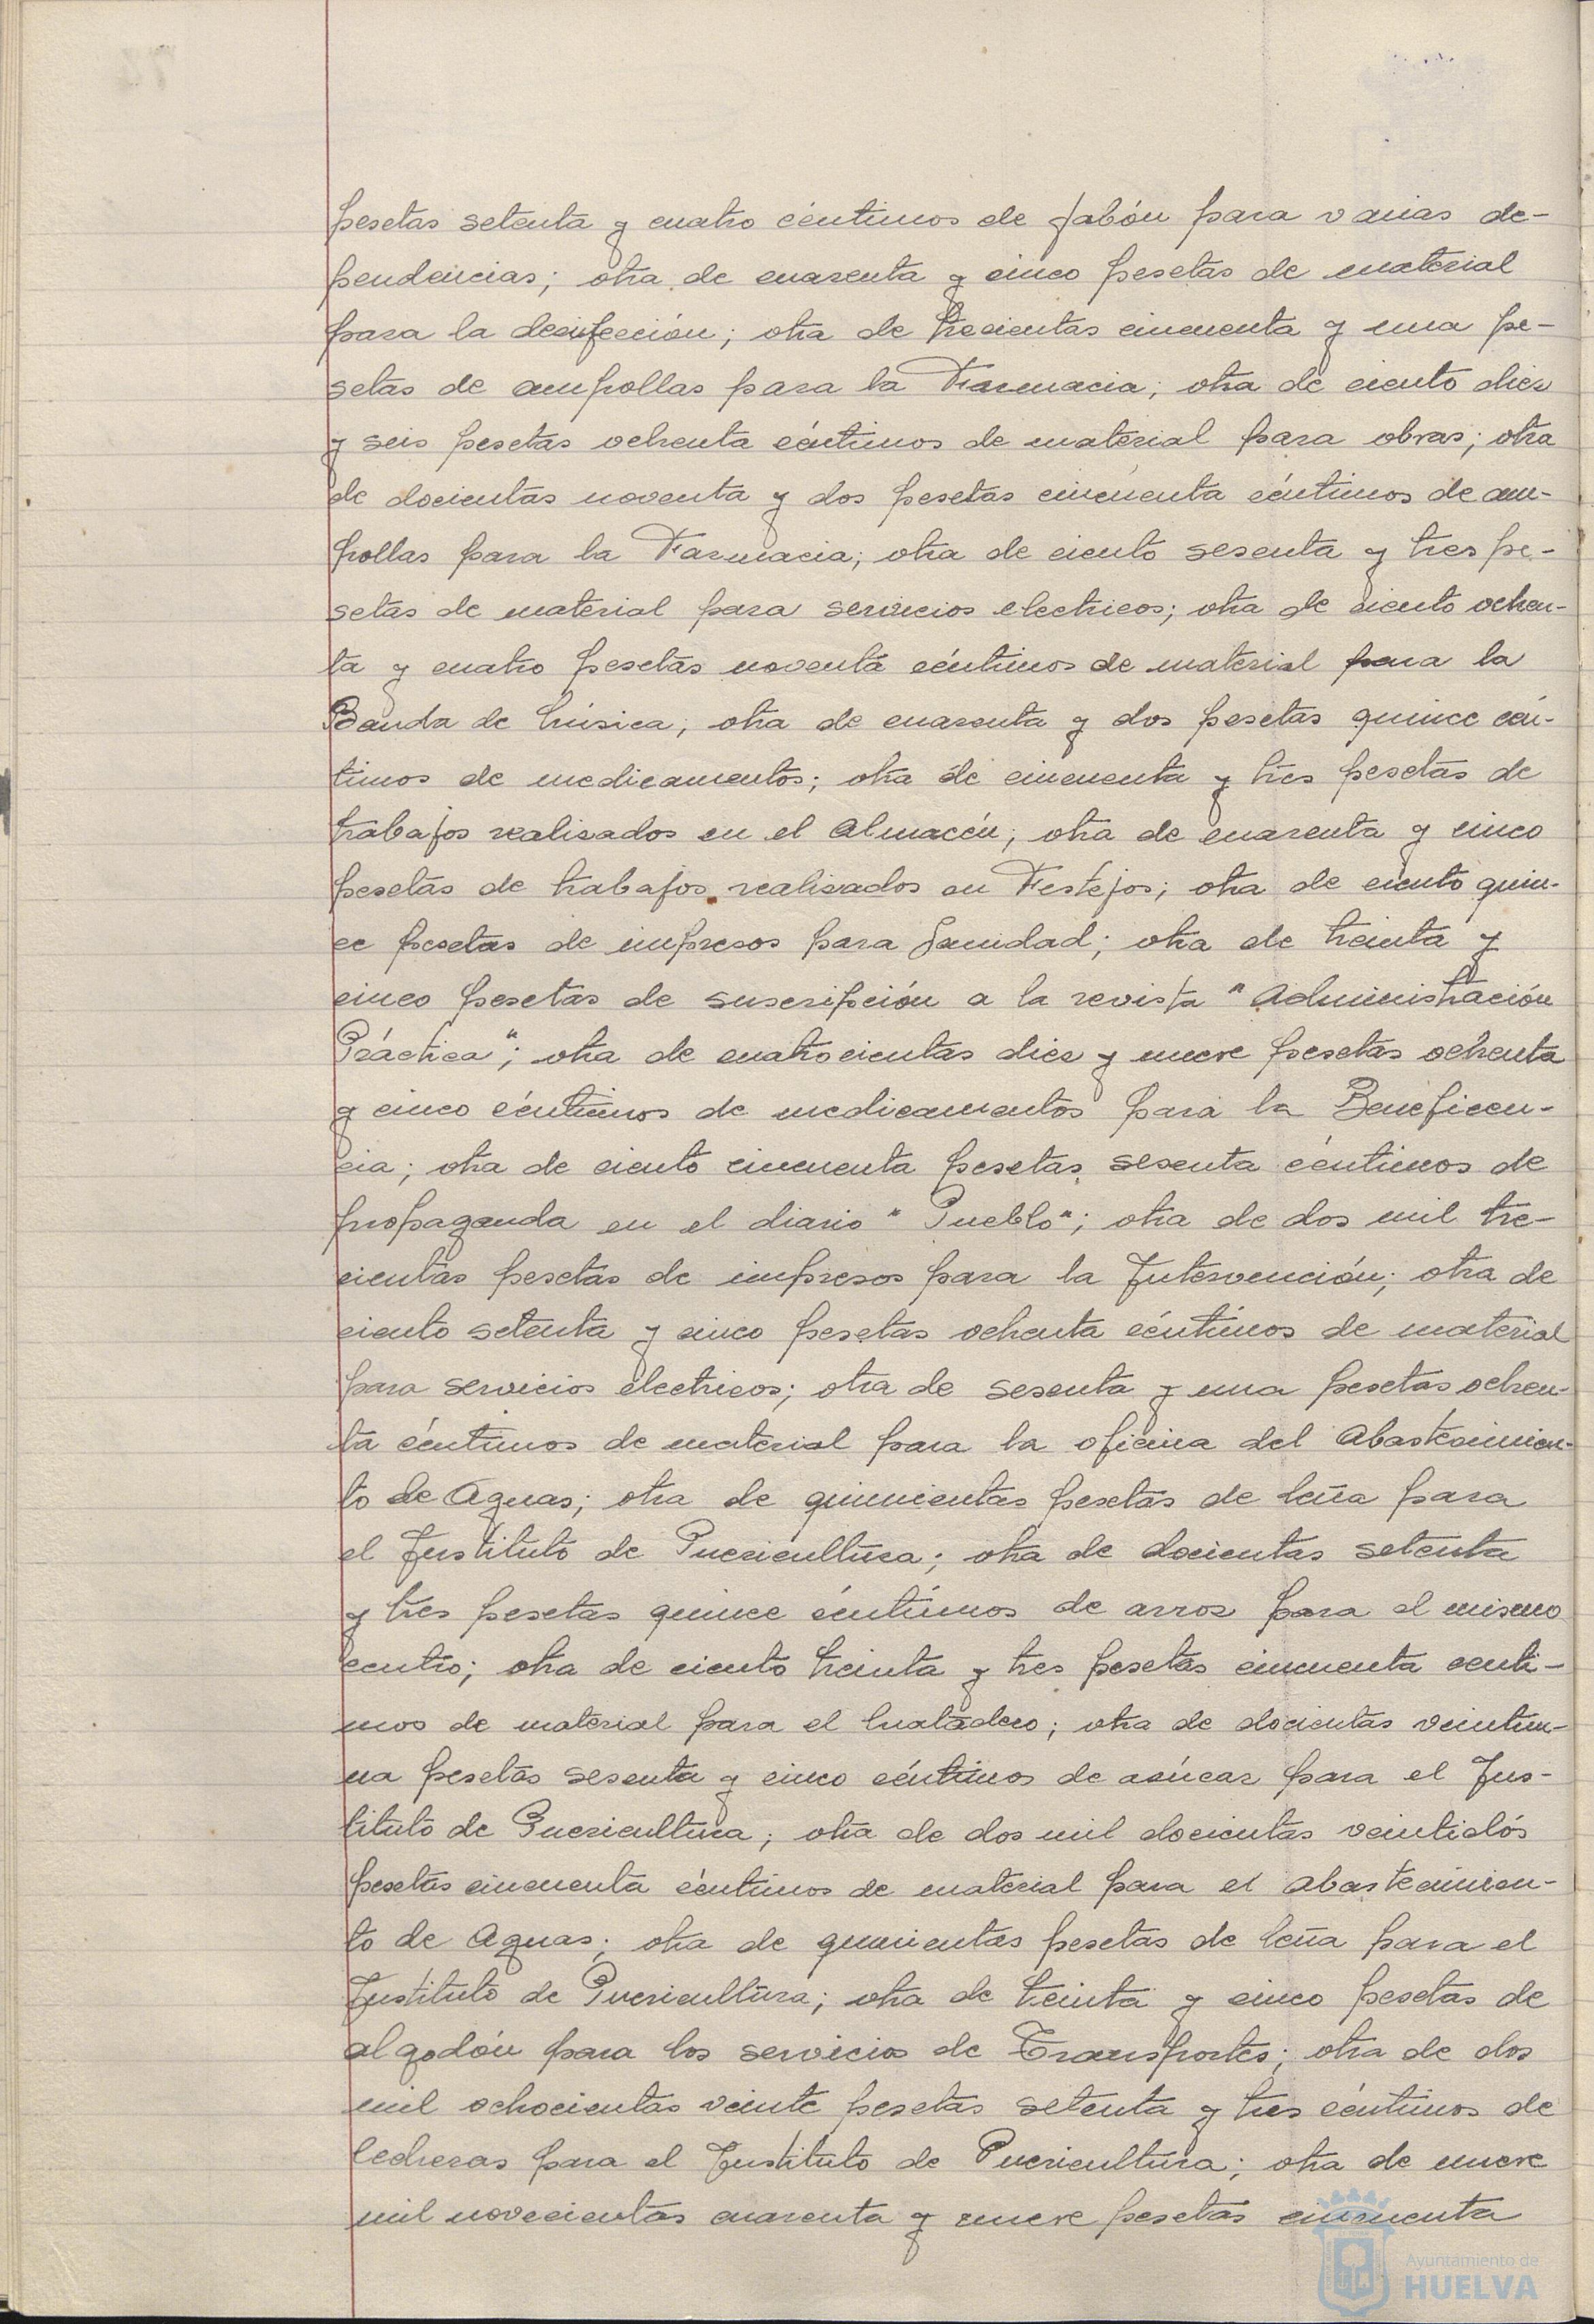 pesetas setenta y cuatro céntimos de Jabón para varias de-
pendencias; otra de cuarenta y cinco pesetas de material
para la desinfección; otra de trecientas cincuenta y una pe-
setas de ampollas para la Farmacia; otra de ciento diez
y seis pesetas ochenta céntimos de material para obras; otra
de docientas noventa y dos pesetas cincuenta céntimos de am-
pollas para la Farmacia; otra de ciento sesenta y tres pe-
setas de material para servicios electricos; otra de ciento ochen-
ta y cuatro pesetas noventa céntimos de material para la
Banda de Música; otra de cuarenta y dos pesetas quince cén-
timos de medicamentos; otra de cincuenta y tres pesetas de
trabajos realisados en el Almacén; otra de cuarenta y cinco
pesetas de trabajos realisados en Festejos; otra de ciento quin-
ce pesetas de impresos para Sanidad; otra de treinta y
cinco pesetas de suscripción a la revista "Administración
Práctica"; otra de cuatrocientas diez y nueve pesetas ochenta
y cinco céntimos de medicamentos para la Beneficen-
cia; otra de ciento cincuenta pesetas sesenta céntimos de
propaganda en el diario "Pueblo"; otra de dos mil tre-
cientas pesetas de impresos para la Intervención; otra de
ciento setenta y cinco pesetas ochenta céntimos de material
para servicios electricos; otra de sesenta y una pesetas ochen-
ta céntimos de material para la oficina del Abastecimien-
to de Aguas; otra de quinientas pesetas de leña para
el Instituto de Puericultura; otra de docientas setenta
y tres pesetas quince céntimos de arroz para el mismo
centro; otra de ciento treinta y tres pesetas cincuenta centi-
mos de material para el Matadero; otra de docientas veintiu-
na pesetas sesenta y cinco céntimos de azúcar para el Ins-
tituto de Puericultura; otra de dos mil docientas veintidós
pesetas cincuenta céntimos de material para el Abastecimien-
to de Aguas; otra de quinientas pesetas de leña para el
Instituto de Puericultura; otra de treinta y cinco pesetas de
algodón para los servicios de Transportes; otra de dos
mil ochocientas veinte pesetas setenta y tres céntimos de
lecheras para el Instituto de Puericultura; otra de nueve
mil novecientas cuarenta y nueve pesetas cincuenta
Ayuntamiento de
HUELVA